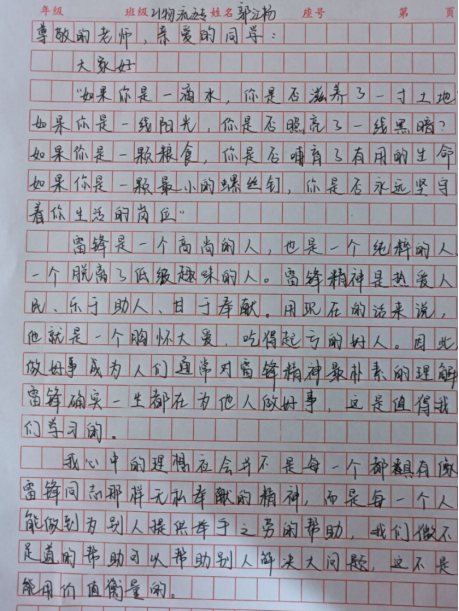 年级 班级 计物流专 姓名 郭江杨 座号 第 页
尊敬的老师，亲爱的同学：
大家好
“如果你是一滴水，你是否滋养了一寸土地
如果你是一线阳光，你是否照亮了一线黑暗？
如果你是一颗粮食，你是否哺育了有用的生命
如果你是一颗最小的螺丝钉，你是否永远坚守
着你生活的岗位”
雷锋是一个高尚的人，也是一个纯粹的人
一个脱离了低级趣味的人。雷锋精神是热爱人
民、乐于助人、甘于奉献。用现在的话来说，
他就是一个胸怀大爱，吃得起亏的好人。因此
做好事成为人们通常对雷锋精神最朴素的理解
雷锋确实一生都在为他人做好事，这是值得我
们学习的。
我心中的理想社会并不是每一个都具有像
雷锋同志那样无私奉献的精神，而是每一个人
能做到为别人提供举手之劳的帮助，我们微不
足道的帮助可以帮助别人解决大问题，这不是
能用价值衡量的。